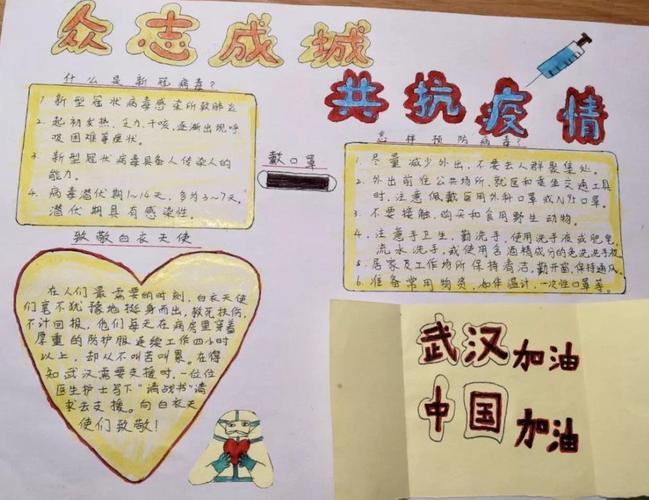 众志成城
共抗疫情
什么是新冠病毒？
1 新型冠状病毒感染所致肺炎
2. 起初发热、乏力、干咳,逐渐出现呼
吸困难等症状。
3. 新型冠状病毒具备人传染人的
能力。
4. 病毒潜伏期1～14天,多为3～7天。
潜伏期具有感染性。
戴口罩
怎样预防病毒？
1. 尽量减少外出,不要去人群聚集处。
2. 外出前往公共场所、就医和乘坐交通工具
时,注意佩戴医用外科口罩或N95口罩。
3. 不要接触、购买和食用野生动物。
4. 注意手卫生,勤洗手,使用洗手液或肥皂,
流水洗手,或使用含酒精成分的免洗洗手液
5. 居家及工作场所保持清洁,勤开窗,保持通风。
6. 准备常用物资,如体温计、一次性口罩等。
致敬白衣天使
在人们最需要的时刻,白衣天使
们毫不犹豫地挺身而出,救死扶伤,
不计回报,他们每天在病房里穿着
厚重的防护服连续工作四小时
以上,却从不叫苦叫累。在得
知武汉需要支援时,一位位
医生护士写下“请战书”请
求去支援。向白衣天
使们致敬!
武汉加油
中国加油